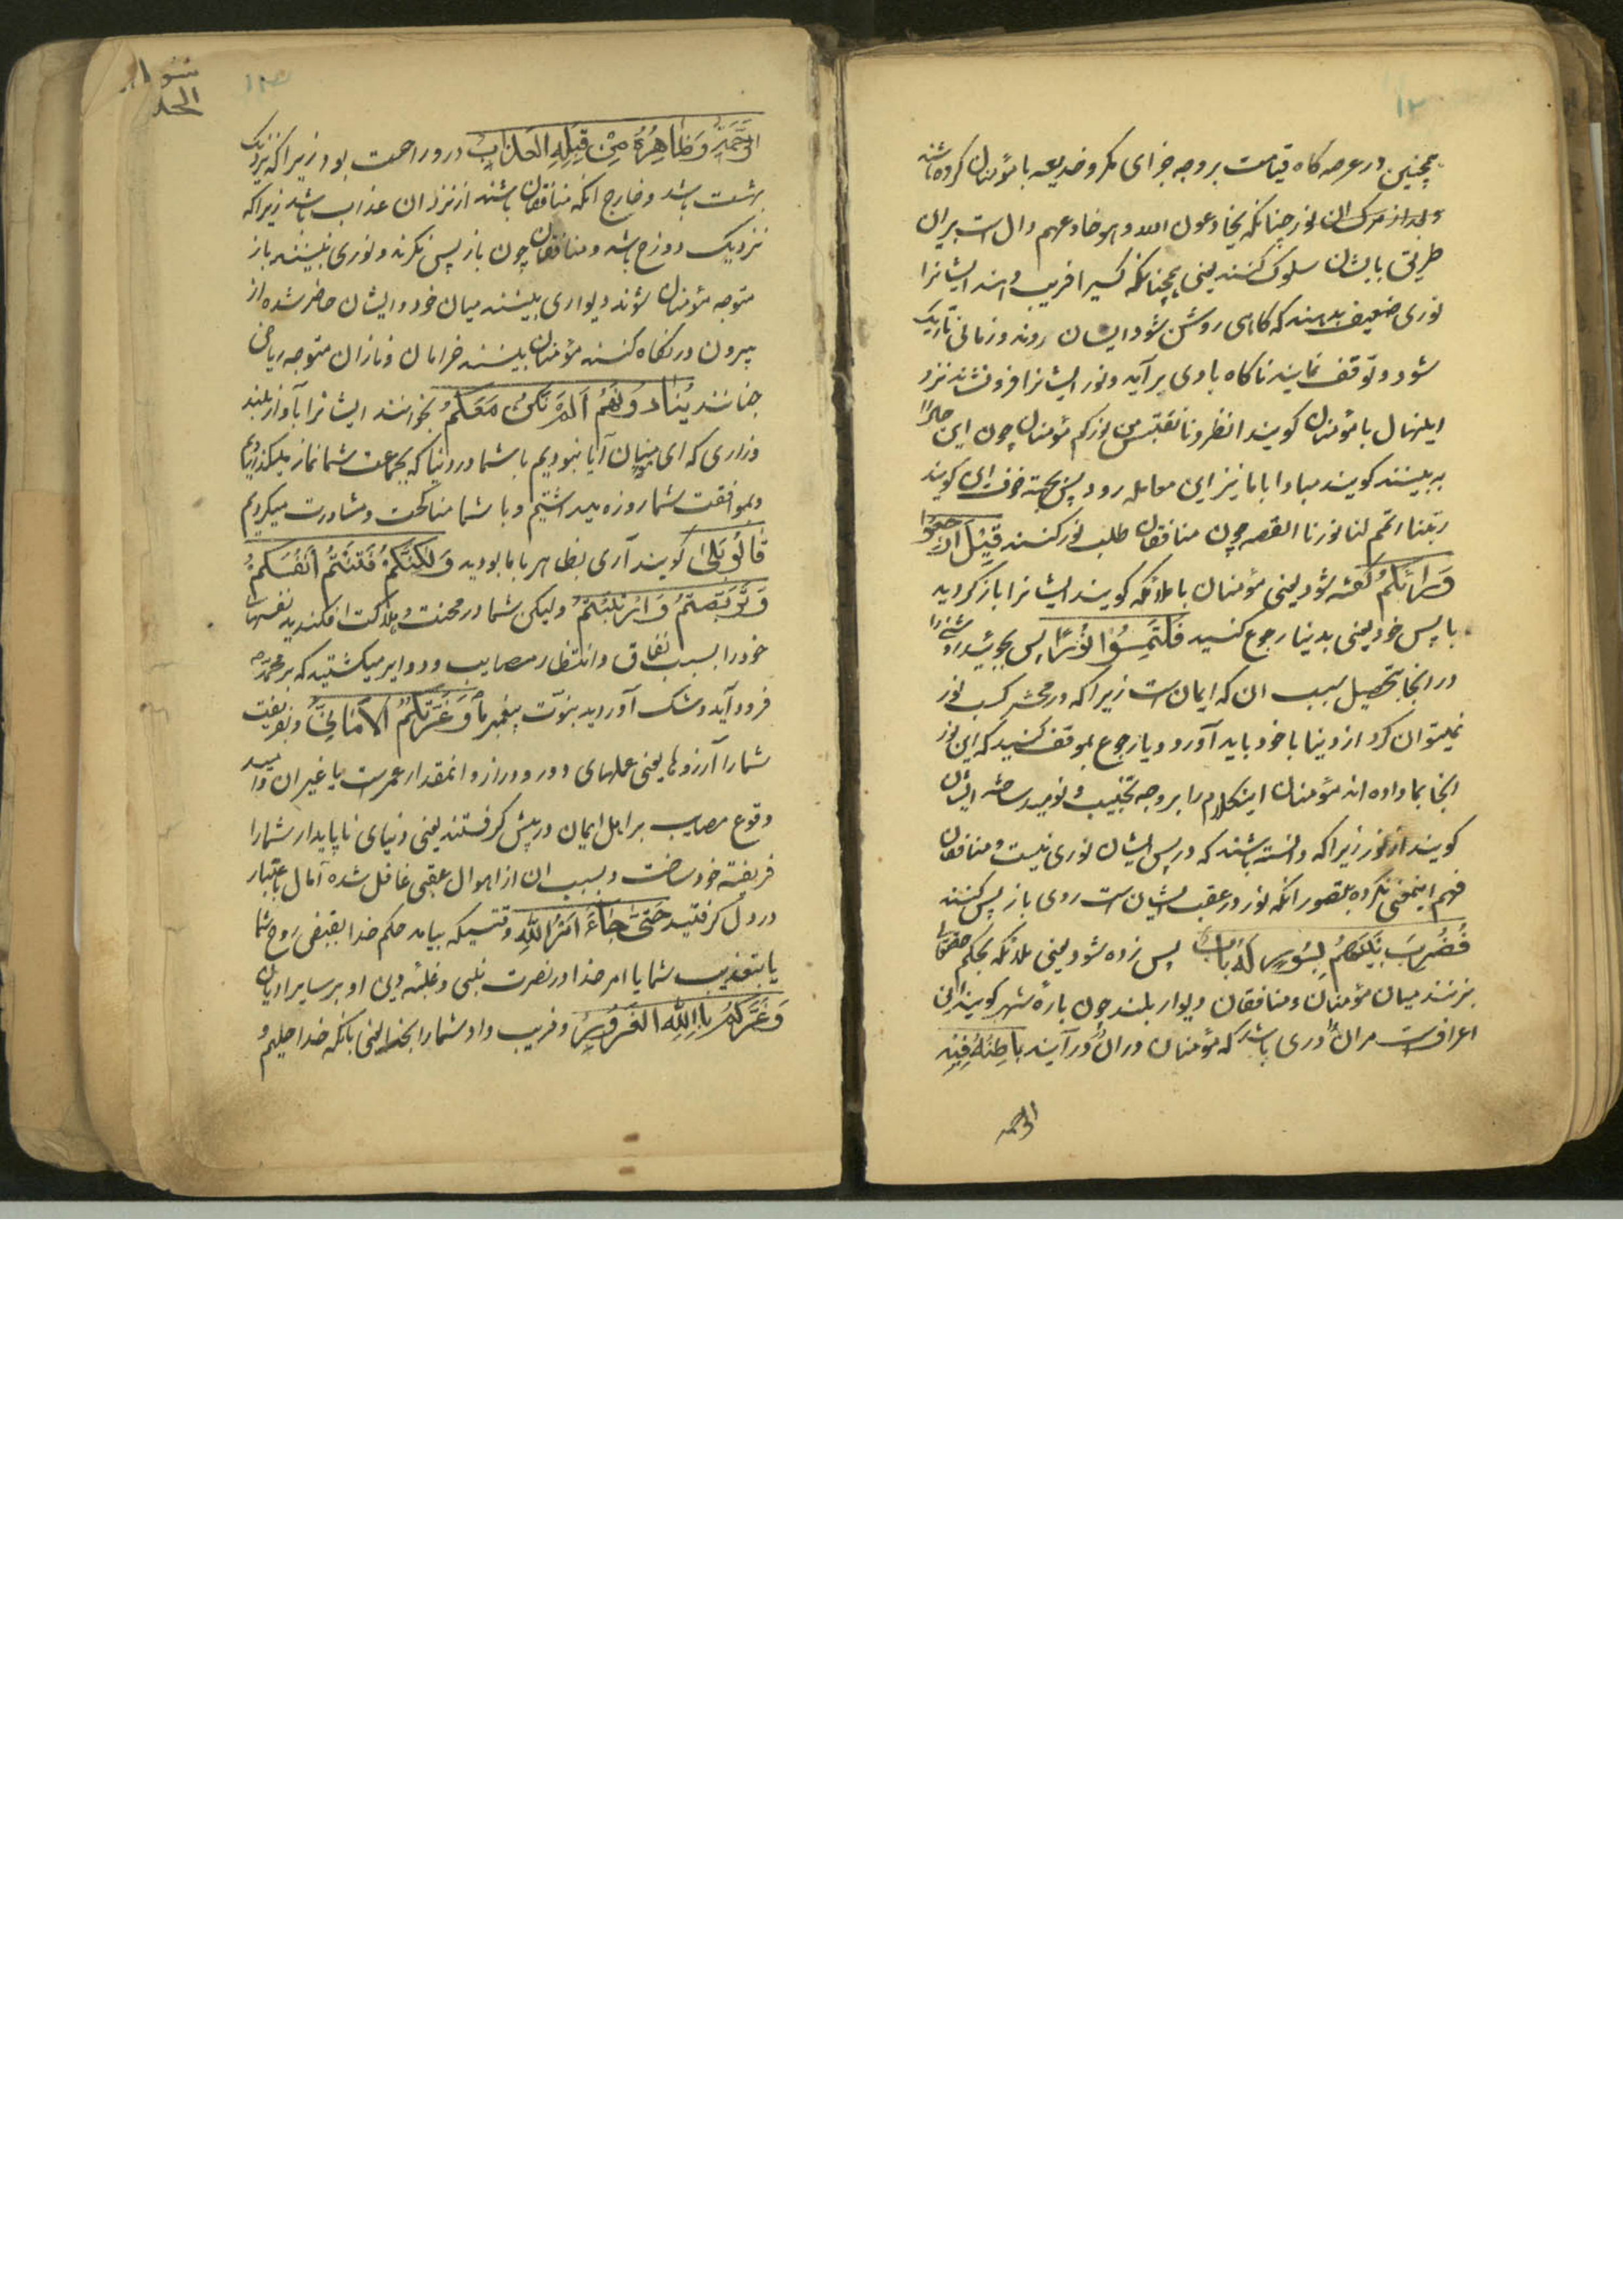 ۱۲
همچنین در عرصه کاه قیامت بر وجه جزای مکر و خدیعه با مؤمنان کرده باشند
و بعد از مرک ان نوز چنانکه یخادعون الله و هو خادعهم دال است بر ان
طریق با یشان سلوک کنند یعنی همچنانکه کسیرا فریب دهند ایشانرا
نوری ضعیف بدهند که کاهی روشن شود ایشان روند و زمانی تاریک
شود و توقف نمایند ناکاه بادی بر آید و نور ایشانرا فرو نشاند نزد
اینحال با مؤمنان کویند انظرونا نقتبس من نورکم مؤمنان چون این حالرا
به بینند کویند مبادا با ما نیز این معامله رود پس بجهة خوف ان کویند
ربنا اتمم لنا نورنا القصه چون منافقان طلب نور کنند قِیْلَ ارْجِعُوْا
وَرَائَکُمْ گفته شود یعنی مؤمنان با ملائکه کویند ایشانرا باز کردید
باپس خود یعنی بدنیا رجوع کنید فَلْتَمِسُوْا نُوْرًا پس بجوئید روشنی را
در انجا بتحصیل سبب ان که ایمان است زیرا که در محشر کسب نور
نمیتوان کرد از دنیا با خود باید آورد و یا رجوع بموقف کنید که این نور
انجا بما داده اند مؤمنان اینکلام را بر وجه تخییب و نومید ساختن ایشان
کویند از نور زیرا که دانسته باشند که در پس ایشان نوری نیست و منافقان
فهم اینمعنی نکرده بتصور انکه نور در عقب ایشان است روی باز پس کنند
فَضُرِبَ بَیْنَهُمْ بِسُوْرٍ لَهُ بَابٌ پس زده شود یعنی ملائکه بحکم حقتعالی
بزنند میان مؤمنان و منافقان دیوار بلند چون بارهٔ شهر کویند ان
اعراف است مر ان را دری باشد که مؤمنان در ان در آیند بَاطِنُهُ فِیْهِ
الرحمه
سوره
الحد
الرَّحْمَةُ وَظَاهِرُهُ مِنْ قِبَلِهِ الْعَذَابُ در و رحمت بود زیرا که نزدیک
بهشت باشد و خارج انکه منافقان باشند از نزد ان عذاب باشد زیرا که
نزدیک دوزخ باشد و منافقان چون باز پس نکرند و نوری نبینند باز
متوجه مؤمنان شوند دیواری بینند میان خود و ایشان حاضر شده از
بیرون در نکاه کنند مؤمنان بینند خرامان و نازان متوجه ریاض
جنانند یُنَادُوْنَهُمْ اَلَمْ نَکُنْ مَعَکُمْ بخوانند ایشانرا بآواز بلند
و زاری که ای مومنان آیا نبودیم با شما در دنیا که بجماعت شما نماز میگذاردیم
و بموافقت شما روزه میداشتیم و با شما مناکحت و مشاورت میکردیم
قَالُوْ بَلٰی کویند آری بظاهر با ما بودید وَلٰکِنَّکُمْ فَتَنْتُمْ اَنْفُسَکُمْ
وَتَرَبَّصْتُمْ وَارْتَبْتُمْ ولیکن شما در محنت و هلاکت افکندید نفسهای
خود را بسبب نفاق و انتظار مصایب و دوایر میکشتید که بر محمد
فرود آید و شک آوردید بنبوّت پیغمبر ما وَغَرَّتْکُمُ الْاَمَانِیُّ و بفریفت
شما را آرزوها یعنی عملهای دور و دراز و انمقدار عمر است یا غیر ان و امید
وقوع مصایب بر اهل ایمان در پیش کرفتند یعنی دنیای ناپایدار شما را
فریفته خود ساخت و بسبب ان از اهوال عقبی غافل شده آمال بی اعتبار
در دل کرفتید حَتّٰی جَاءَ اَمْرُ اللّٰهِ وقتیکه بیامد حکم خدا بقبض روح شما
یا بتعذیب شما یا امر خدا در نصرت نبی و غلبه دین او بر سایر ادیان
وَغَرَّکُمْ بِااللّٰهِ الْغَرُوْرُ و فریب داد شما را بخدا یعنی بانکه خدا حلیم و